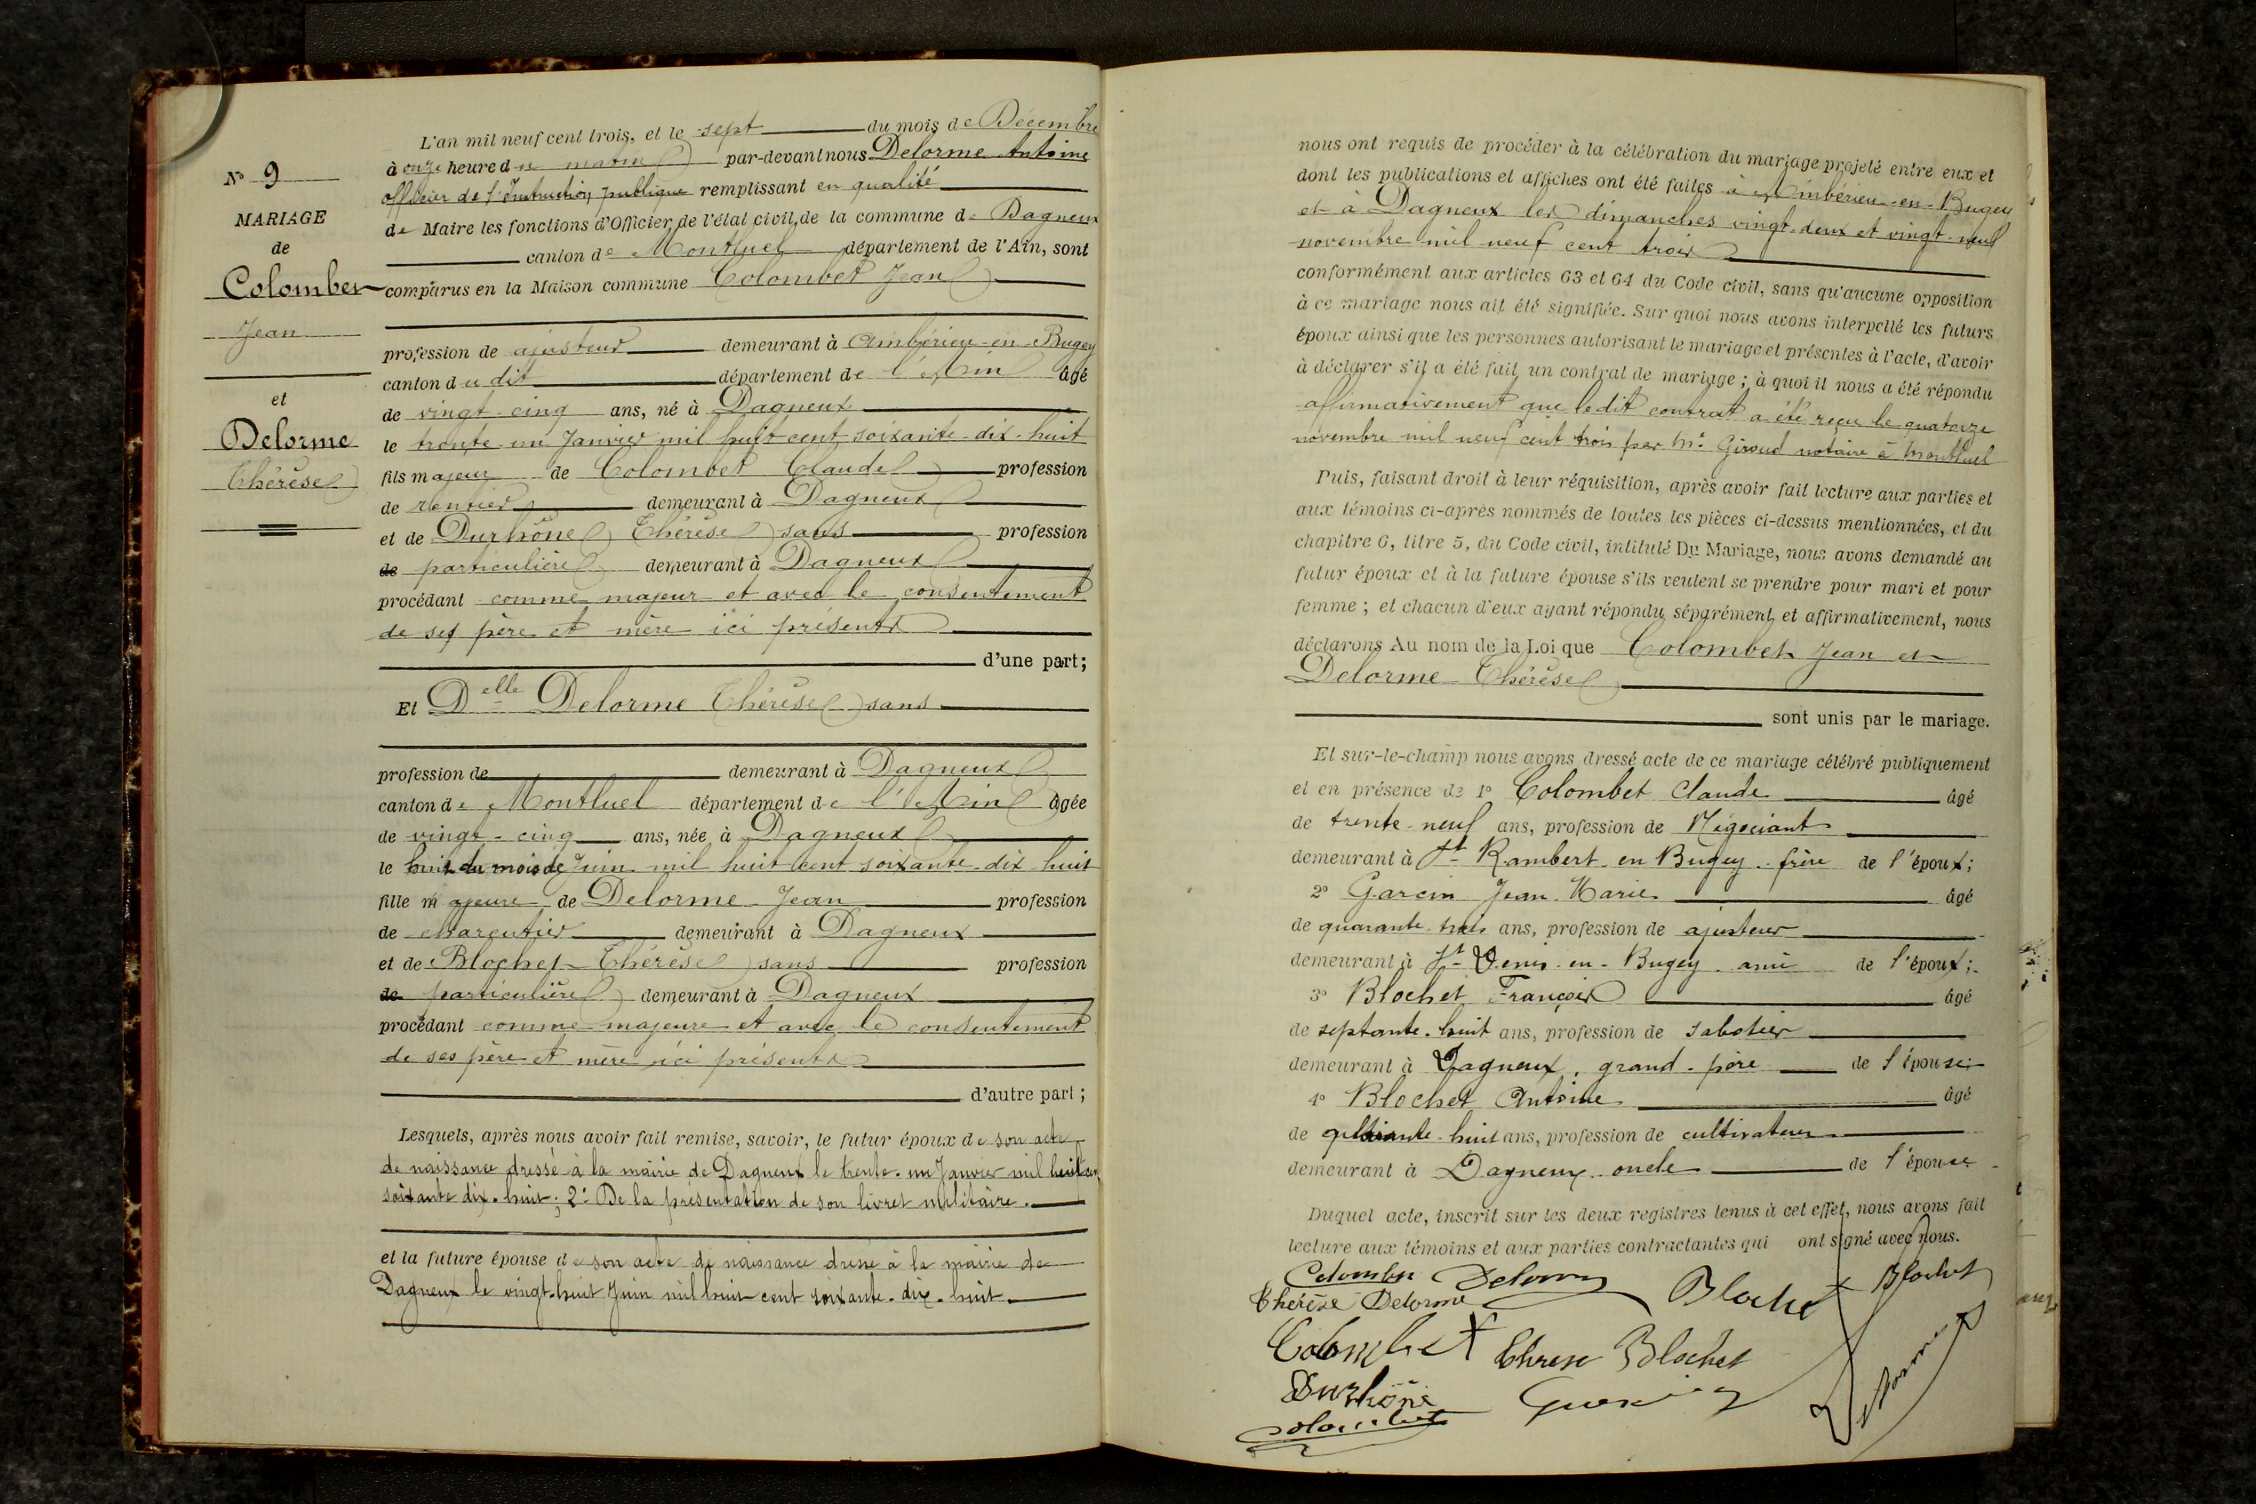 N° 9
MARIAGE
de
Colombet
Jean
et
Delorme
Thérèse
L'an mil neuf cent trois, et le sept du mois de Décembre
à onze heure du matin par-devant nous Delorme Antoine
officier de l'Instruction publique remplissant en qualité
de Maire les fonctions d'Officier de l'état civil de la commune de Dagneux
canton de Montluel département de l'Ain, sont
comparus en la Maison commune Colombet Jean
profession de ajusteur demeurant à Ambérieu-en-Bugey
canton du dit département de l'Ain âgé
de vingt-cinq ans, né à Dagneux
le trente-un Janvier mil huit cent soixante-dix-huit
fils majeur de Colombet Claude profession
de rentier demeurant à Dagneux
et de Durhône Thérèse sans profession
de particulière demeurant à Dagneux
procédant comme majeur et avec le consentement
de ses père et mère ici présents
d'une part;
Et Delle Delorme Thérèse sans
profession de demeurant à Dagneux
canton de Montluel département de l'Ain âgée
de vingt-cinq ans, née à Dagneux
le huit du mois de Juin mil huit cent soixante-dix-huit
fille majeure de Delorme Jean profession
de charpentier demeurant à Dagneux
et de Blochet Thérèse sans profession
de particulière demeurant à Dagneux
procédant comme majeure et avec le consentement
de ses père et mère ici présents
d'autre part;
Lesquels, après nous avoir fait remise, savoir, le futur époux de son acte
de naissance dressé à la mairie de Dagneux le trente-un Janvier mil huit cent
soixante dix-huit; 2° De la présentation de son livret militaire.
et la future épouse de son acte de naissance dressé à la mairie de
Dagneux le vingt-huit Juin mil huit cent soixante-dix-huit.
nous ont requis de procéder à la célébration du mariage projeté entre eux et
dont les publications et affiches ont été faites à Ambérieu-en-Bugey
et à Dagneux les dimanches vingt-deux et vingt-neuf
novembre mil neuf cent trois
conformément aux articles 63 et 64 du Code civil, sans qu'aucune opposition
à ce mariage nous ait été signifiée. Sur quoi nous avons interpellé les futurs
époux ainsi que les personnes autorisant le mariage et présentes à l'acte, d'avoir
à déclarer s'il a été fait un contrat de mariage; à quoi il nous a été répondu
affirmativement que ledit contrat a été reçu le quatorze
novembre mil neuf cent trois par Me Giroud notaire à Montluel
Puis, faisant droit à leur réquisition, après avoir fait lecture aux parties et
aux témoins ci-après nommés de toutes les pièces ci-dessus mentionnées, et du
chapitre 6, titre 5, du Code civil, intitulé Du Mariage, nous avons demandé au
futur époux et à la future épouse s'ils veulent se prendre pour mari et pour
femme; et chacun d'eux ayant répondu séparément et affirmativement, nous
déclarons Au nom de la Loi que Colombet Jean et
Delorme Thérèse
sont unis par le mariage.
Et sur-le-champ nous avons dressé acte de ce mariage célébré publiquement
et en présence de 1° Colombet Claude âgé
de trente-neuf ans, profession de Négociant
demeurant à St Rambert-en Bugey frère de l'époux;
2° Garcin Jean-Marie âgé
de quarante-trois ans, profession de ajusteur
demeurant à St Denis-en-Bugey ami de l'époux;
3° Blochet François âgé
de septante-huit ans, profession de sabotier
demeurant à Dagneux, grand-père de l'épouse;
4° Blochet Antoine âgé
de huit ans, profession de cultivateur
demeurant à Dagneux oncle de l'épouse
Duquel acte, inscrit sur les deux registres tenus à cet effet, nous avons fait
lecture aux témoins et aux parties contractantes qui ont signé avec nous.
Colombet Delorme Blochet Blochet
Thérèse Delorme
Colombet Threse Blochet
Durhône
Colombet
Delorme